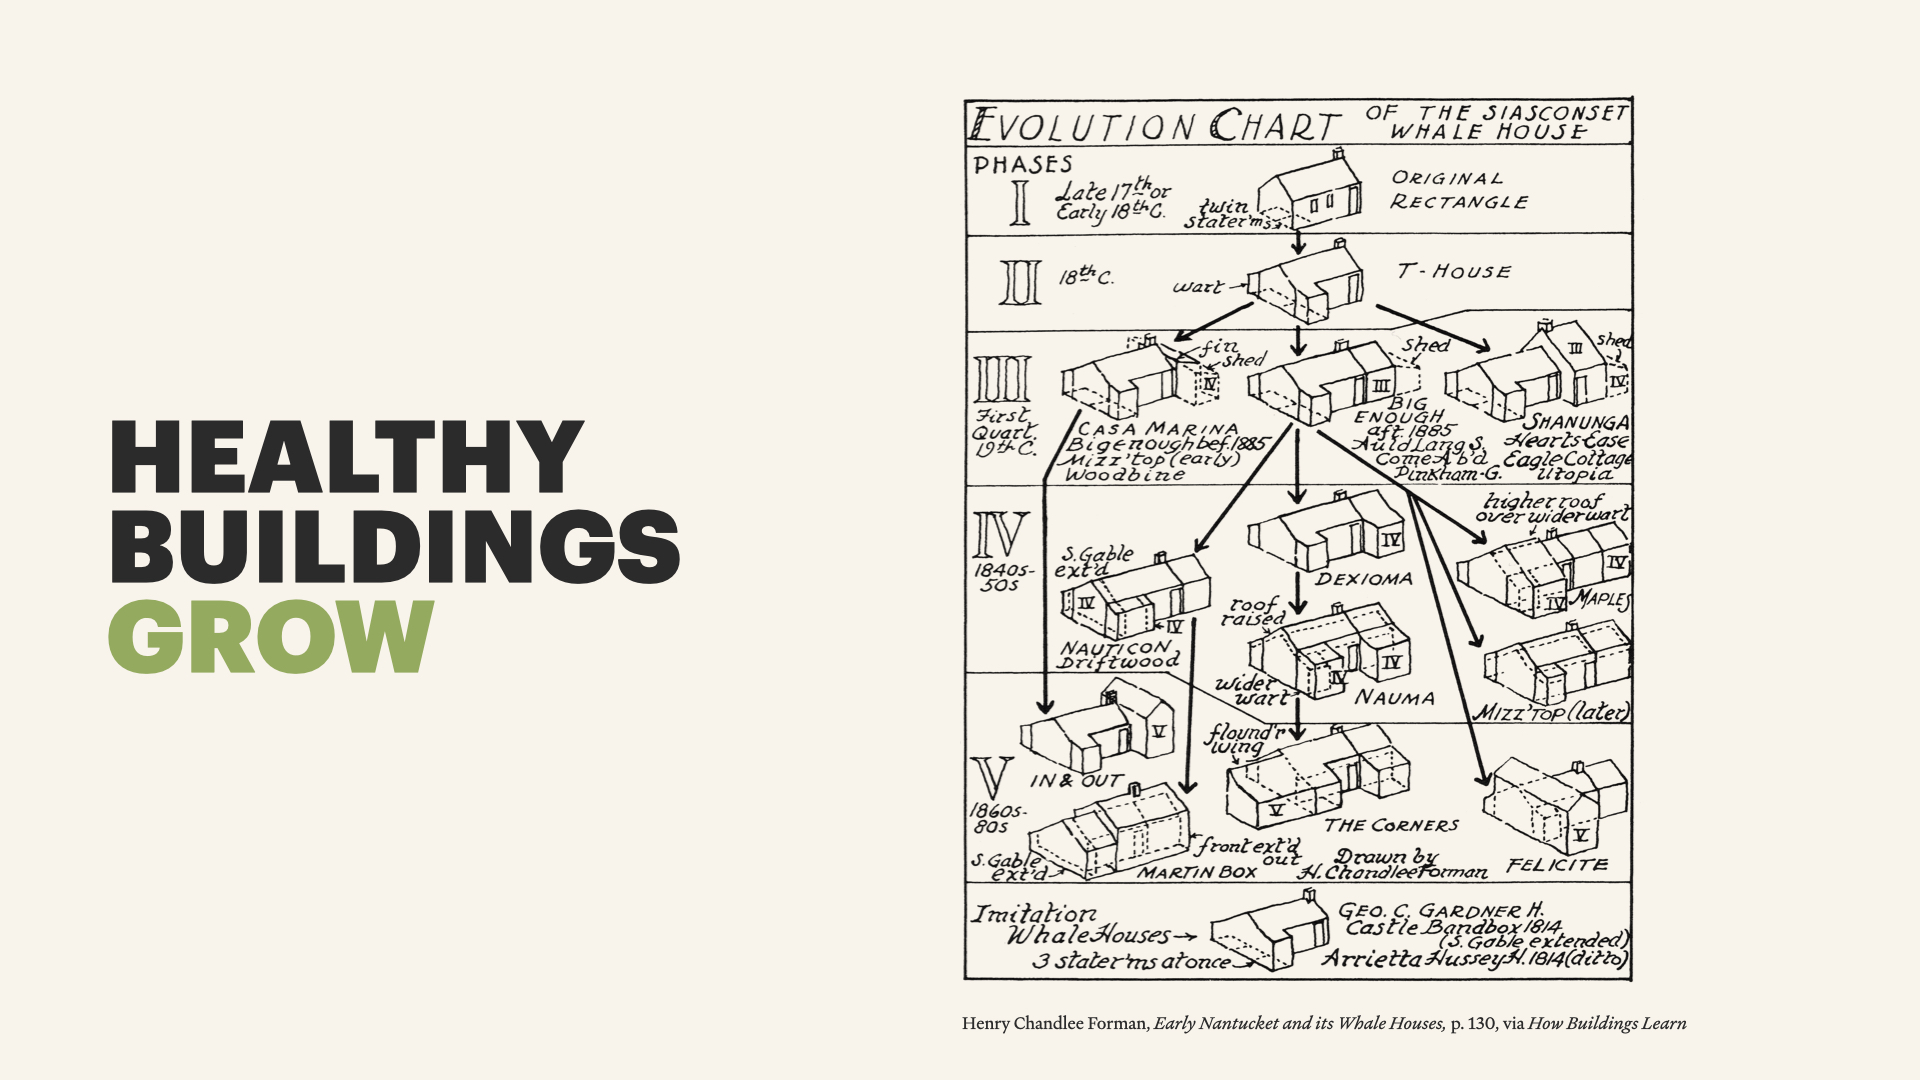 HEALTHY
BUILDINGS
GROW
EVOLUTION CHART
OF THE SIASCONSET
WHALE HOUSE
PHASES
I
Late 17th or
Early 18th C.
twin
stater'ms
ORIGINAL
RECTANGLE
II
18th C.
wart
T-HOUSE
III
First
Quart.
19th C.
fin
shed
IV
CASA MARINA
Big enough bef. 1885
Mizz'top (early)
Woodbine
shed
III
BIG
ENOUGH
aft. 1885
Auld Lang S.
Come A b'd
Pinkham-G.
III
shed
IV
SHANUNGA
Hearts-Ease
Eagle Cottage
Utopia
IV
1840s-
50s
S. Gable
ext'd
IV
IV
NAUTICON
Driftwood
IV
DEXIOMA
roof
raised
IV
IV
wider
wart
NAUMA
higher roof
over wider wart
IV
IV
MAPLES
MIZZ'TOP (later)
V
1860s-
80s
V
IN & OUT
S. Gable
ext'd
front ext'd
out
MARTIN BOX
flound'r
wing
V
THE CORNERS
Drawn by
H. Chandlee Forman
V
FELICITE
Imitation
Whale Houses
3 stater'ms at once
GEO. C. GARDNER H.
Castle Bandbox 1814
(S. Gable extended)
Arrietta Hussey H. 1814 (ditto)
Henry Chandlee Forman, Early Nantucket and its Whale Houses, p. 130, via How Buildings Learn